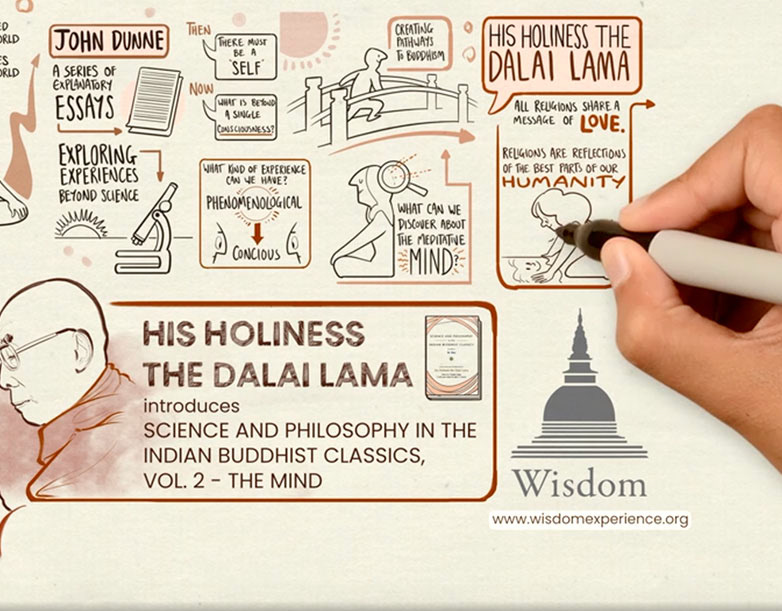 ED
ORLD
ES
ORLD
JOHN DUNNE
A SERIES OF
EXPLANATORY
ESSAYS
EXPLORING
EXPERIENCES
BEYOND SCIENCE
THEN
THERE MUST
BE A
"SELF"
NOW
WHAT IS BEYOND
A SINGLE
CONSCIOUSNESS?
WHAT KIND OF EXPERIENCE
CAN WE HAVE?
PHENOMENOLOGICAL
CONCIOUS
CREATING
PATHWAYS
TO BUDDHISM
WHAT CAN WE
DISCOVER ABOUT
THE MEDITATIVE
MIND?
HIS HOLINESS THE
DALAI LAMA
ALL RELIGIONS SHARE A
MESSAGE OF LOVE.
RELIGIONS ARE REFLECTIONS
OF THE BEST PARTS OF OUR
HUMANITY
HIS HOLINESS
THE DALAI LAMA
introduces
SCIENCE AND PHILOSOPHY IN THE
INDIAN BUDDHIST CLASSICS,
VOL. 2 - THE MIND
SCIENCE AND PHILOSOPHY
INDIAN BUDDHIST CLASSICS
Wisdom
www.wisdomexperience.org